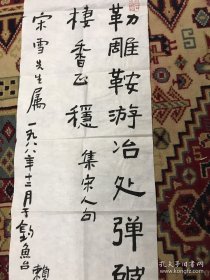 勒雕鞍游冶处弹破
棲香正穩 集宋人句
宋雪先生属 一九八八年十二月于釣魚台